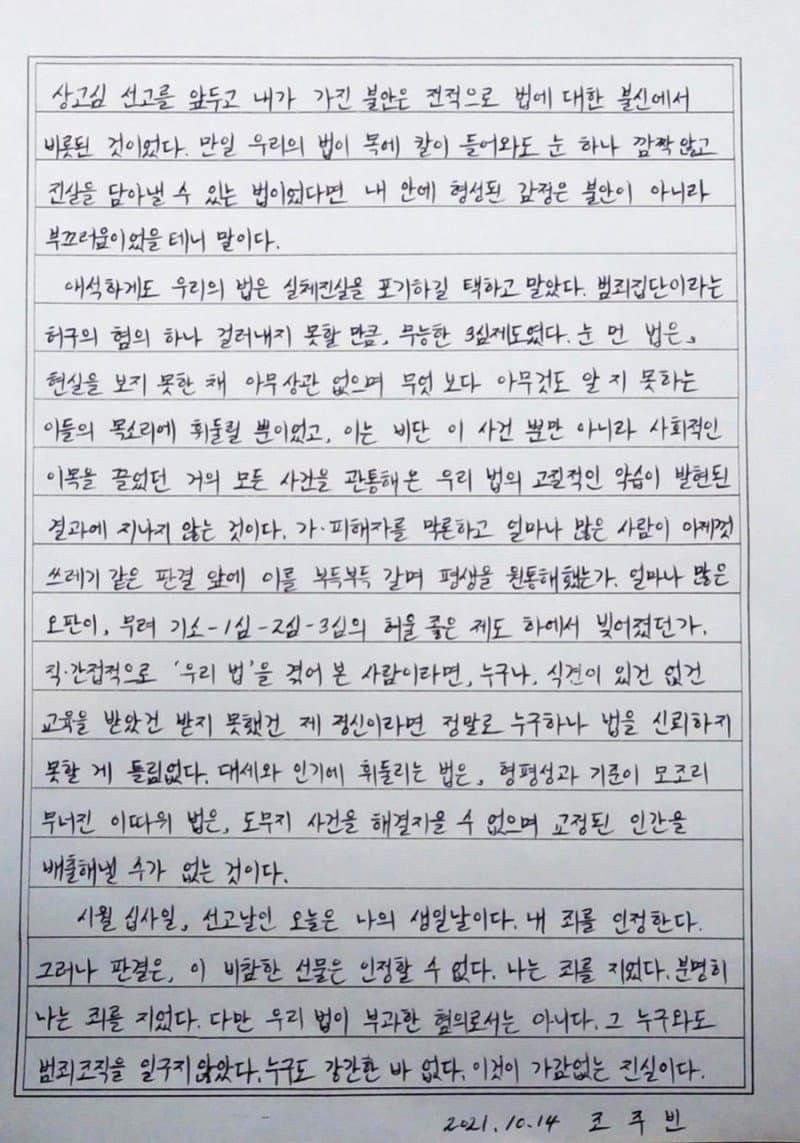 상고심 선고를 앞두고 내가 가진 불안은 전적으로 법에 대한 불신에서
비롯된 것이었다. 만일 우리의 법이 목에 칼이 들어와도 눈 하나 깜짝 않고
진실을 담아낼 수 있는 법이었다면 내 안에 형성된 감정은 불안이 아니라
부끄러움이었을 테니 말이다.
애석하게도 우리의 법은 실체진실을 포기하길 택하고 말았다. 범죄집단이라는
허구의 혐의 하나 걸러내지 못할 만큼, 무능한 3심제도였다. 눈 먼 법은,
현실을 보지 못한 채 아무 상관 없으며 무엇 보다 아무것도 알 지 못하는
이들의 목소리에 휘둘릴 뿐이었고, 이는 비단 이 사건 뿐만 아니라 사회적인
이목을 끌었던 거의 모든 사건을 관통해온 우리 법의 고질적인 악습이 발현된
결과에 지나지 않는 것이다. 가·피해자를 막론하고 얼마나 많은 사람이 여제껏
쓰레기 같은 판결 앞에 이를 부득부득 갈며 평생을 원통해했는가. 얼마나 많은
오판이, 무려 기소-1심-2심-3심의 허울 좋은 제도 하에서 빚어졌던가.
직·간접적으로 '우리 법'을 겪어 본 사람이라면, 누구나, 식견이 있건 없건
교육을 받았건 받지 못했건 제 정신이라면 정말로 누구하나 법을 신뢰하지
못할 게 틀림없다. 대세와 인기에 휘둘리는 법은, 형평성과 기준이 모조리
무너진 이따위 법은, 도무지 사건을 해결지을 수 없으며 교정된 인간을
배출해낼 수가 없는 것이다.
시월 십사일, 선고날인 오늘은 나의 생일날이다. 내 죄를 인정한다.
그러나 판결은, 이 비참한 선물은 인정할 수 없다. 나는 죄를 지었다. 분명히
나는 죄를 지었다. 다만 우리 법이 부과한 혐의로서는 아니다. 그 누구와도
범죄조직을 일구지 않았다. 누구도 강간한 바 없다. 이것이 가감없는 진실이다.
2021.10.14 조 주 빈